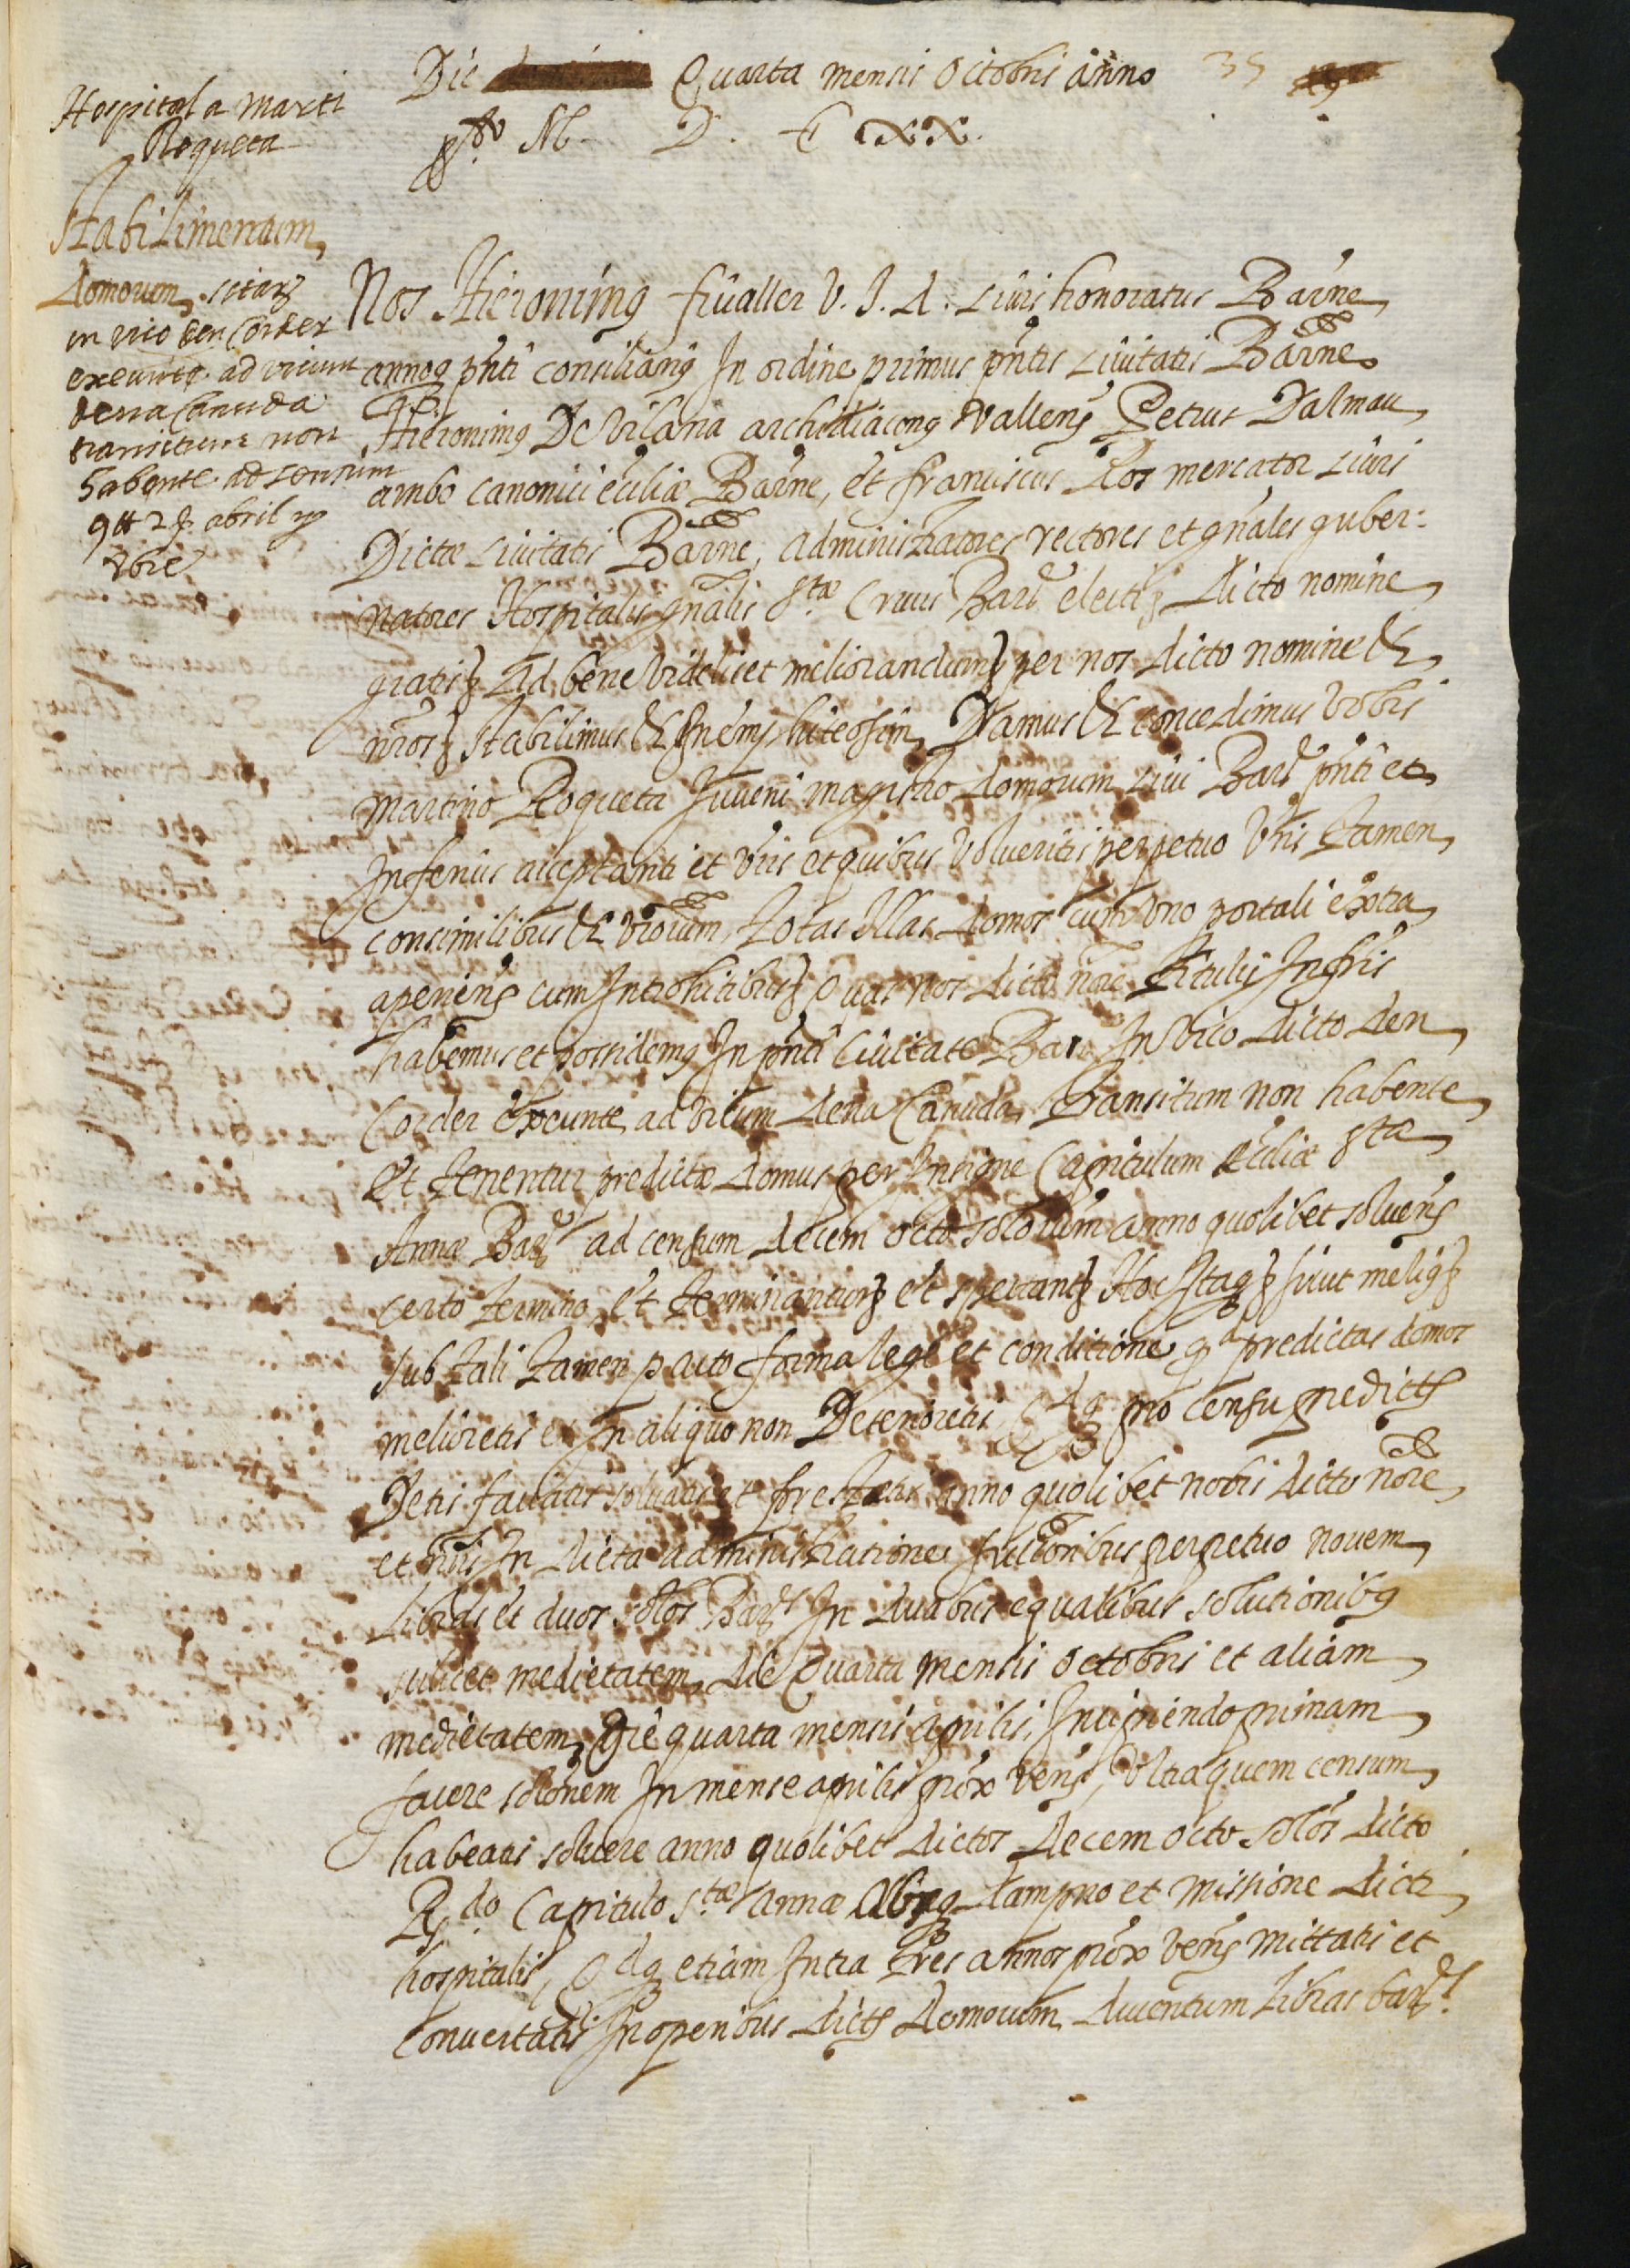 Die Quarta mensis Octobris anno 35
pto. M. D. C xx.
Hospital a Marti
Roqueta
Stabilimentum
domorum sitarz
in vico den Corder
exeuntẽ ad vicum
dena Canuda
transitum non
habente ad censum
9 ₶ 2 ʃ abril y
8bre
Nos Hieronimus fivaller V. J. d. civis honoratus Barne
annoq pñti consiliariꝰ In ordine primus pñtis civitatis Barne
Hieronimꝰ De Vilana archidiaconꝰ Vallenß Petrus Dalmau
ambo canonici eccliæ Barne, et franciscus Ros mercator civis
Dictæ civitatis Barne, administratores rectores et gñales guber:
natores Hospitalis gñalis stæ Crucis Barẽ electi dicto nomine
gratis Ad bene videlicet meliorandum per nos dicto nomine &
nros stabilimus & In emphiteosim Damus & concedimus Vobis
Martino Roqueta Juveni magistro domorum civi Barẽ pñti et
Inferius acceptanti et vris et quibus Volueritis perpetuo Vris tamen
consimilibus & vrorum, Totas Illas domos cum Vno portali extra
aperienß cum Introhitibus Quas nos dicto noe Titulis Infris
habemus et possidemꝰ In pñti Civitate Bar In Vico dicto den
Corder Exeunte ad vicum dena Canuda, Transitum non habente
Et Tenentur predictæ domus per Insigne Capitulum Ecclíæ stæ
Annæ Barẽ ad censum decem octo solorum anno quolibet solvenß
certo termino, et Terminantur et spectant Hoc stag sicut meliꝰ
Sub tali tamen pacto forma lege et conditione qd predictas domos
melioretis et In aliquo non Deterioretis, Qdq pro censu predictß
Detis faciatis solvatis et prestetis anno quolibet nobis dicto noe
et nris In dicta administratione successoribus perpetuo novem
Libras et duos solos Barẽ In duabus equalibus solutionibꝰ
scilicet medietatem die Quarta mensis octobris et aliam
medietatem Die quarta mensis aprilis, Incipiendo primam
facere solonem In mense aprilis prox venß, Vltra quem censum
habeatis solvere anno quolibet dictos decem octo solos dicto
R.do Capitulo s.tæ annæ Absq dampno et missione dicti
hospitalis, Qdq etiam Intra tres annos prox venß mittatis et
convertatis In operibus dictß domorum ducentum Libras barẽ.